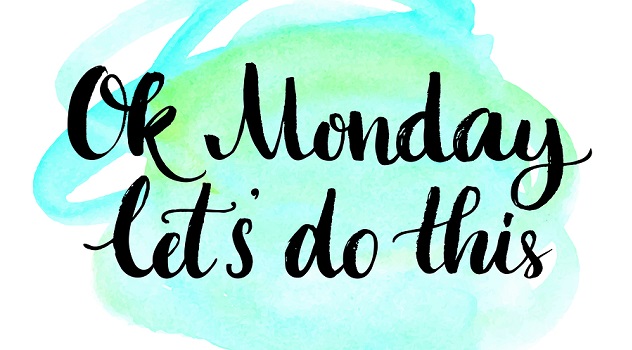 Ok Monday
let's do this